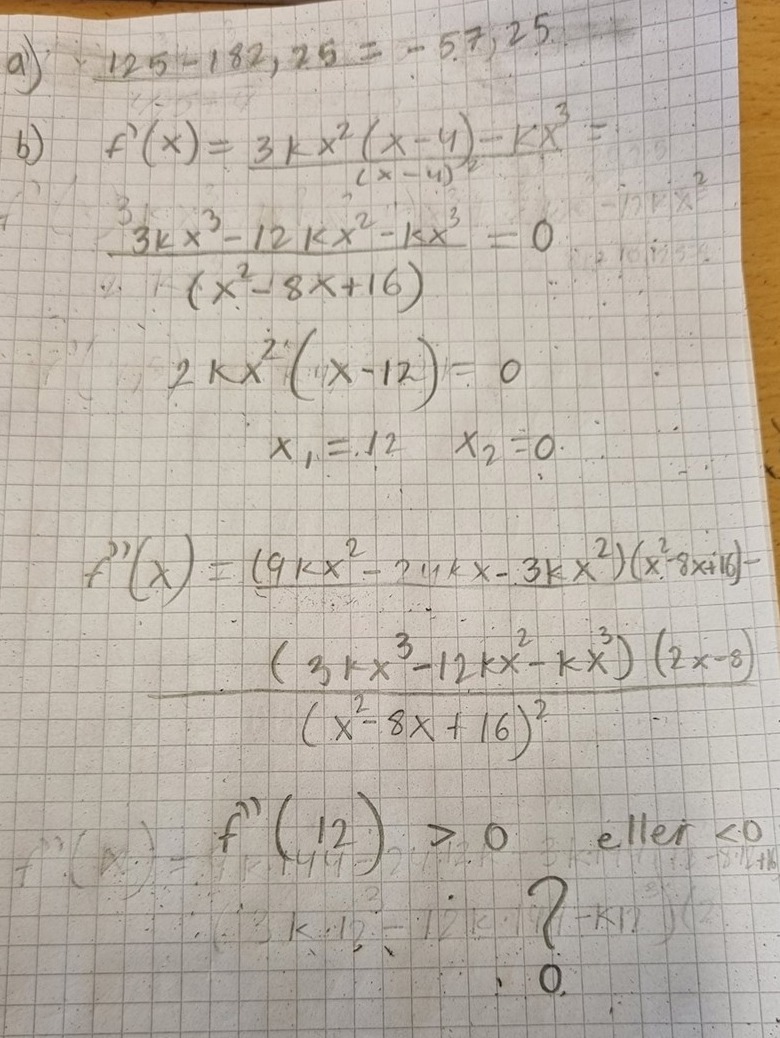 a) 125-182,25 = -57,25
b) f'(x) = 3kx²(x-4)-kx³ =
(x-4)²
3kx³-12kx²-kx³ = 0
(x²-8x+16)
2kx²(x-12) = 0
x₁ = 12 x₂ = 0
f''(x) = (9kx²-24kx-3kx²)(x²-8x+16)-
(3kx³-12kx²-kx³)(2x-8)
(x²-8x+16)²
f''(12) > 0 eller <0
?